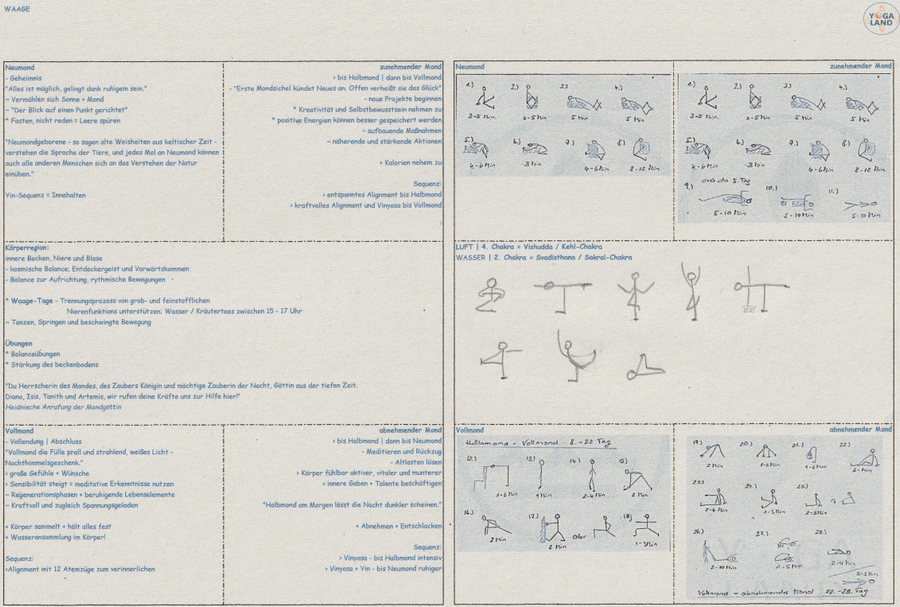 WAAGE
YOGA
LAND
Neumond
zunehmender Mond
- Geheimnis
> bis Halbmond | dann bis Vollmond
"Alles ist möglich, gelingt dank ruhigem sein."
- "Erste Mondsichel kündet Neues an. Offen verheißt sie das Glück"
- Vermählen sich Sonne + Mond
- neue Projekte beginnen
- "Der Blick auf einen Punkt gerichtet"
* Kreativität und Selbstbewusstsein nehmen zu
* Fasten, nicht reden = Leere spüren
* positive Energien können besser gespeichert werden
- aufbauende Maßnahmen
"Neumondgeborene - so sagen alte Weisheiten aus keltischer Zeit -
- nährende und stärkende Aktionen
verstehen die Sprache der Tiere, und jedes Mal an Neumond können
auch alle anderen Menschen sich an das Verstehen der Natur
+ Kalorien nehem zu
einüben."
Sequenz:
Yin-Sequenz = Innehalten
> entspanntes Alignment bis Halbmond
> kraftvolles Alignment und Vinyasa bis Vollmond
Körperregion:
innere Becken, Niere und Blase
- kosmische Balance: Entdeckergeist und Vorwärtskommen
- Balance zur Aufrichtung, rythmische Bewegungen
* Waage-Tage - Trennungsprozess von grob- und feinstofflichen
Nierenfunktions unterstützen: Wasser / Kräutertees zwischen 15 - 17 Uhr
- Tanzen, Springen und beschwingte Bewegung
Übungen
* Balanceübungen
* Stärkung des beckenbodens
"Du Herrscherin des Mondes, des Zaubers Königin und mächtige Zauberin der Nacht, Göttin aus der tiefen Zeit.
Diana, Isis, Tanith und Artemis, wir rufen deine Kräfte uns zur Hilfe hier!"
Heidnische Anrufung der Mondgöttin
Vollmond
abnehmender Mond
- Vollendung | Abschluss
> bis Halbmond | dann bis Neumond
"Vollmond die Fülle prall und strahlend, weißes Licht -
- Meditieren und Rückzug
Nachthimmelsgeschenk."
- Altlasten lösen
> große Gefühle + Wünsche
> Körper fühlbar aktiver, vitaler und munterer
> Sensibilität steigt = meditative Erkenntnisse nutzen
> innere Gaben + Talente beschäftigen
- Regenerationsphasen + beruhigende Lebenselemente
- Kraftvoll und zugleich Spannungsgeladen
"Halbmond am Morgen lässt die Nacht dunkler scheinen."
+ Körper sammelt + hält alles fest
+ Abnehmen + Entschlacken
+ Wasseransammlung im Körper!
Sequenz:
Sequenz:
> Vinyasa - bis Halbmond intensiv
>Alignment mit 12 Atemzüge zum verinnerlichen
> Vinyasa + Yin - bis Neumond ruhiger
Neumond
zunehmender Mond
1.) 2.) 3.) 4.)
3-5 Min 3-5 Min 5 Min 5 Min
5.) 6.) 7.) 8.)
4-6 Min 3 Min 4-6 Min 8-12 Min
1.) 2.) 3.) 4.)
3-5 Min 3-5 Min 5 Min 5 Min
5.) 6.) 7.) 8.)
4-6 Min 3 Min 4-6 Min 8-12 Min
5. Tag
9.) 10.) 11.)
5-10 Min 5-10 Min 5-10 Min
LUFT | 4. Chakra = Vishudda / Kehl-Chakra
WASSER | 2. Chakra = Svadisthana / Sakral-Chakra
Vollmond
abnehmender Mond
Halbmond - Vollmond 8.-22 Tag
12.) 13.) 14.) 15.)
1-2 Min 1 Min 2-4 Min 2 Min
16.) 17.) oder 18.)
2 Min 2 Min 1-3 Min
19.) 20.) 21.) 22.)
2 Min 1-2 Min 1-2 Min 2 Min
23.) 24.) 25.)
2-4 Min 2-3 Min
26.) 27.) 28.)
2-10 Min 2-5 Min 2-4 Min
Vollmond - abnehmender Mond 22.-28. Tag